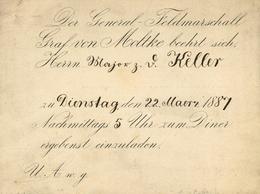 Der General-Feldmarschall
Graf von Moltke beehrt sich,
Herrn Major z. D. Keller
zu Dienstag den 22. Maerz 1887
Nachmittags 5 Uhr zum Diner
ergebenst einzuladen.
U. A. w. g.